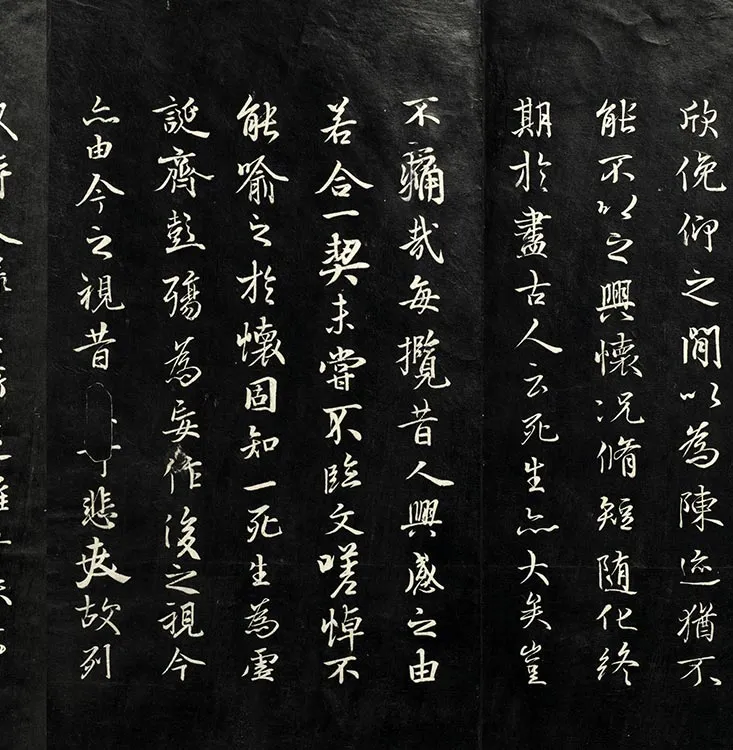 欣俛仰之閒以為陳迹猶不
能不以之興懷況脩短随化終
期於盡古人云死生亦大矣豈
不痛哉每攬昔人興感之由
若合一契未嘗不臨文嗟悼不
能喻之於懷固知一死生為虛
誕齊彭殤為妄作後之視今
亦由今之視昔悲夫故列